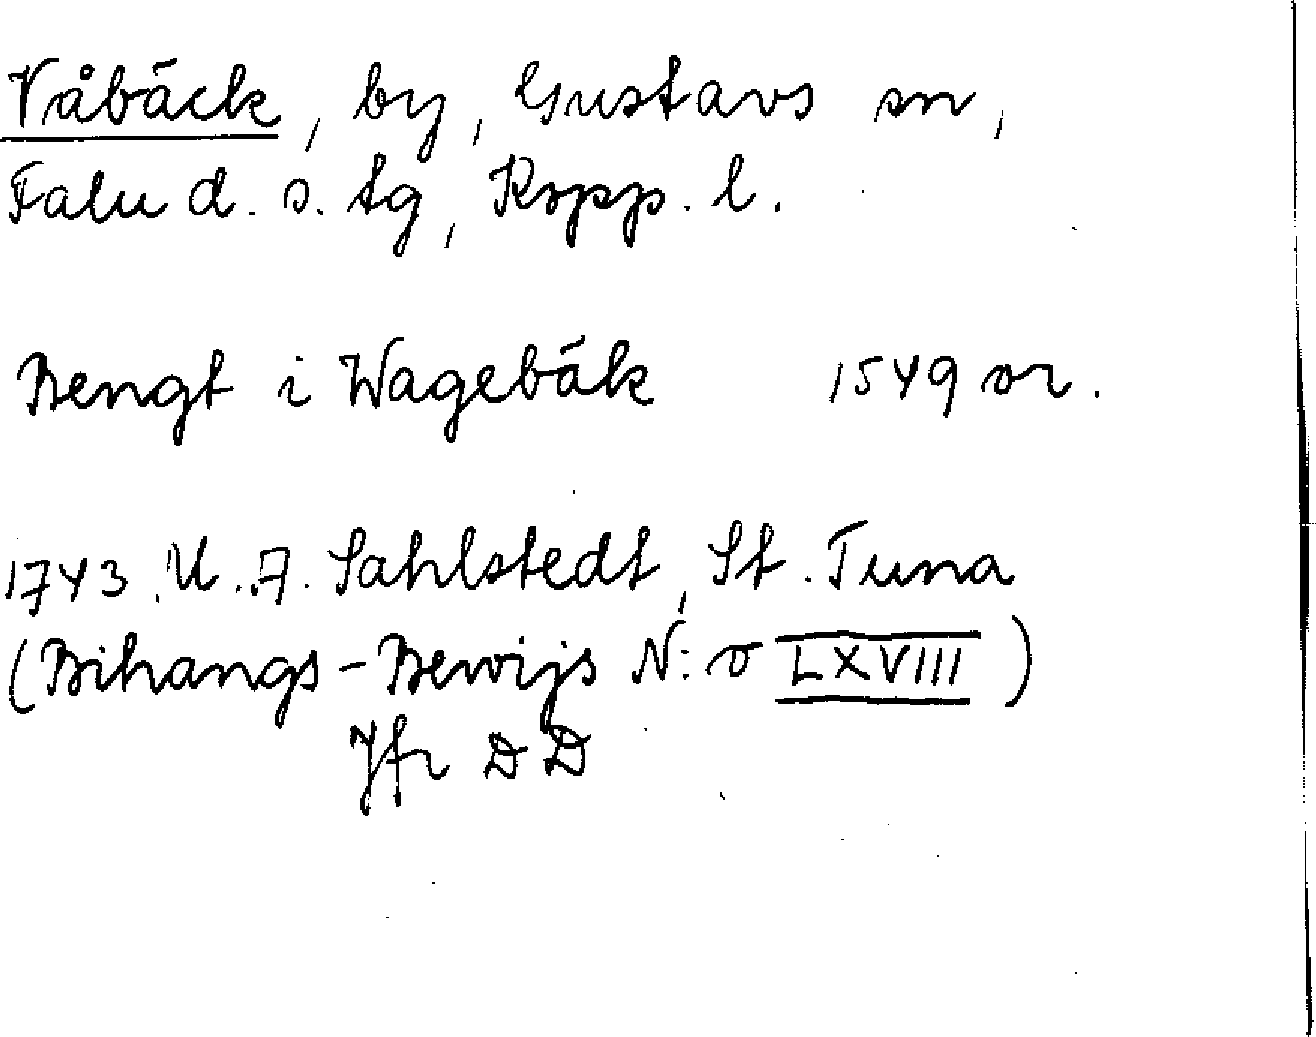 Våbäck, by, Gustavs sn,
Falu d. s. tg, Kopp. l.
Bengt i Wagebäk 1549 or.
1743. U. 7. Sahlstedt, St. Tuna
(Bihangs-Bewijs N:o LXVIII)
Jfr DD